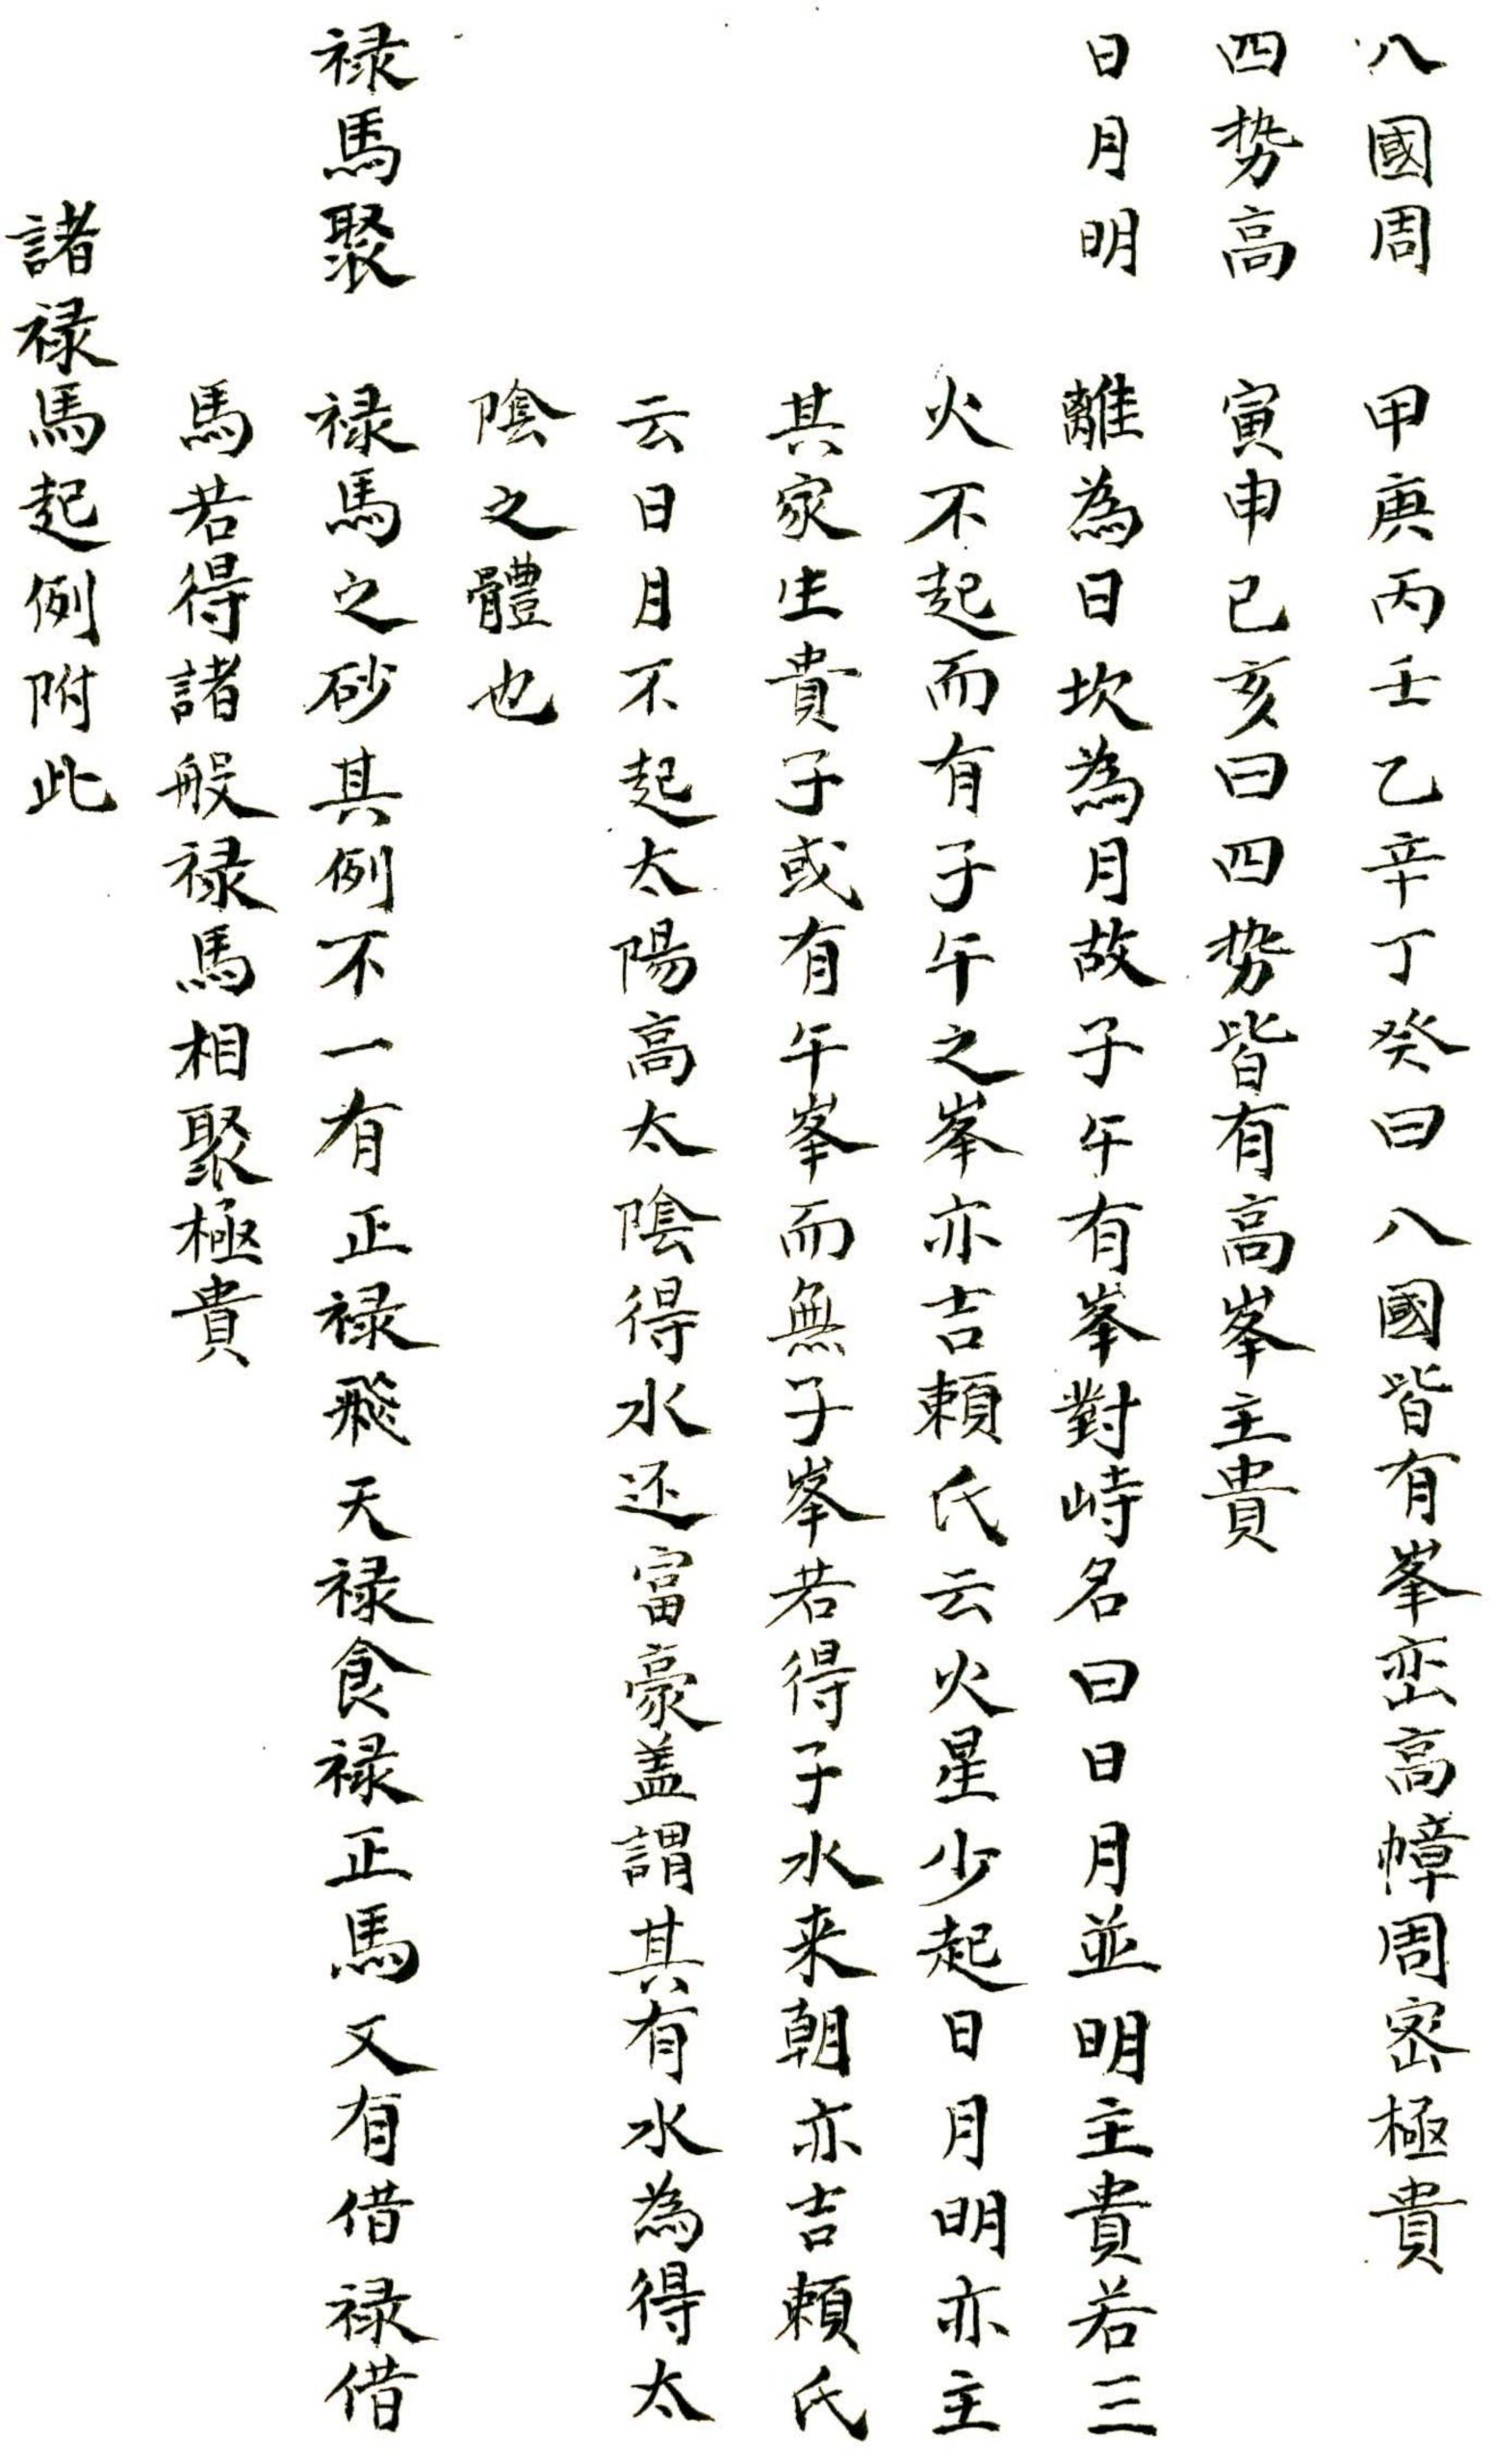 八國周　甲庚丙壬乙辛丁癸曰八國皆有峯巒高幛周宻極貴
四势高　寅申巳亥曰四势皆有高峯主貴
日月明　離為日坎為月故子午有峯對峙名曰日月並明主貴若三
火不起而有子午之峯亦吉頼氏云火星少起日月明亦主
其家生貴子或有午峯而無子峯若得子水来朝亦吉頼氏
云日月不起太陽高太陰得水还富豪盖謂其有水為得太
陰之體也
禄馬聚　禄馬之砂其例不一有正禄飛天禄食禄正馬又有借禄借
馬若得諸般禄馬相聚極貴
諸禄馬起例附此